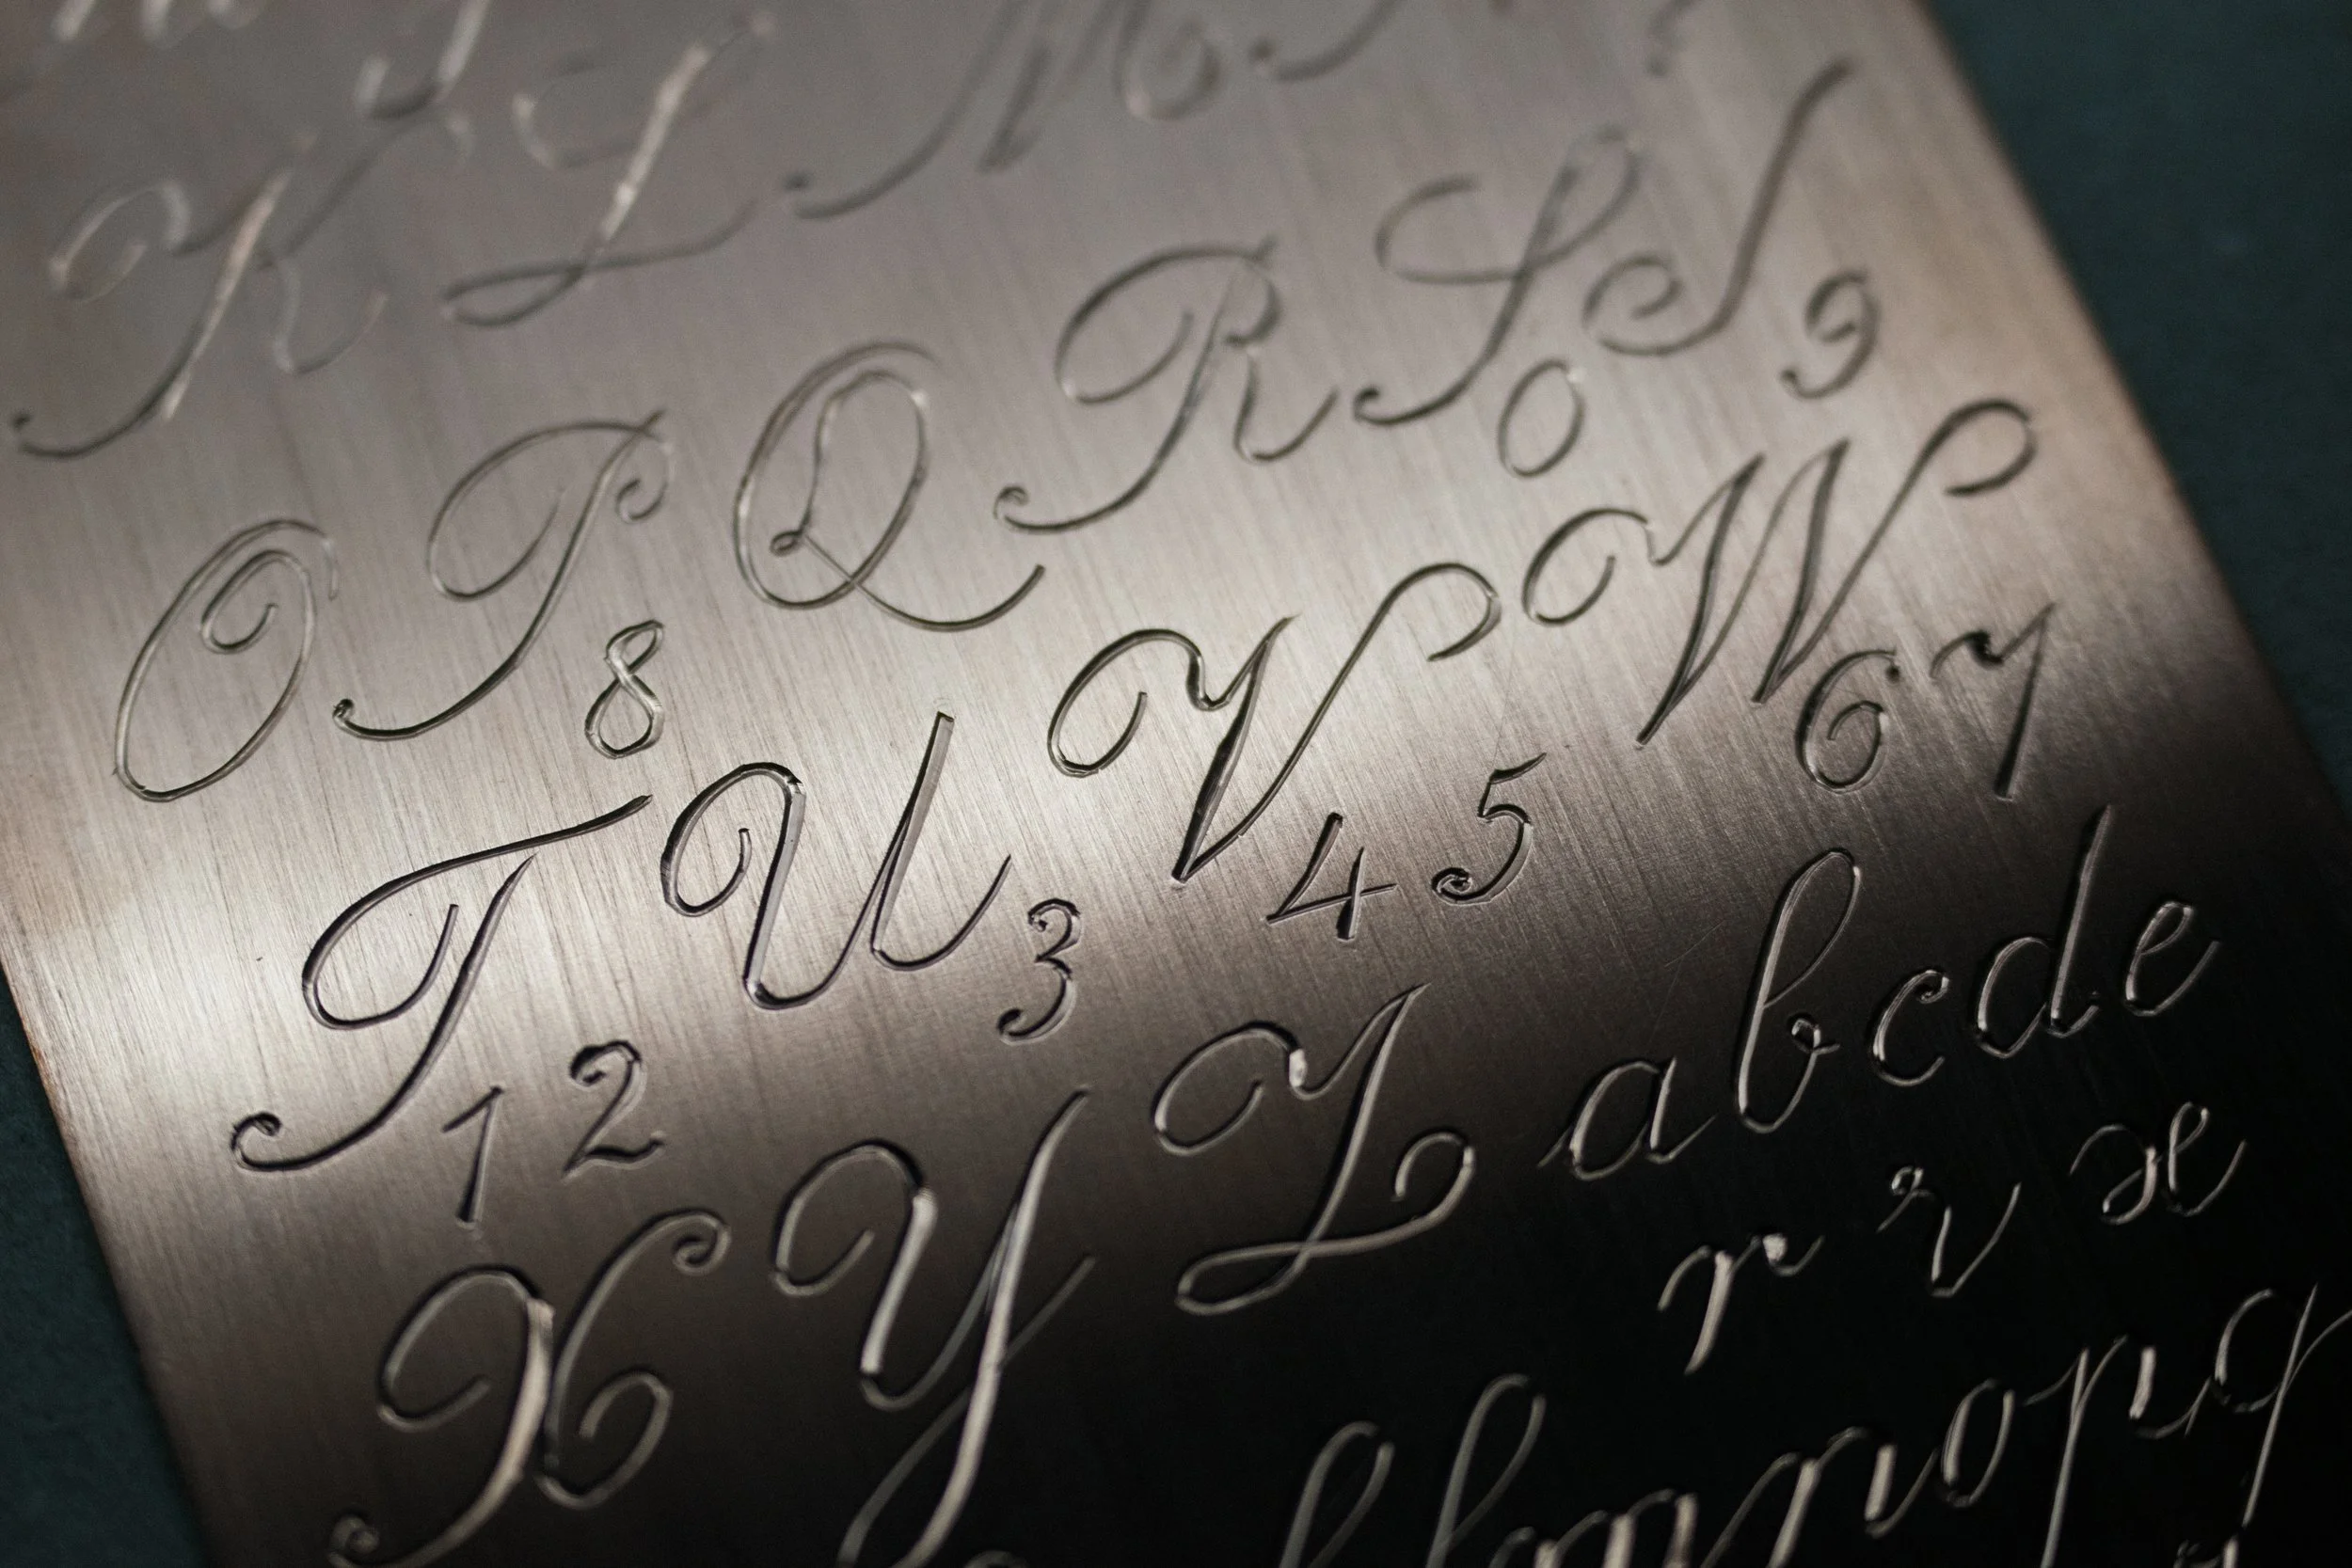 K L M
O P Q R S
8 0 9
T U V W
1 2 3 4 5 6 7
X Y Z a b c d e
r r x
l l m n o p q